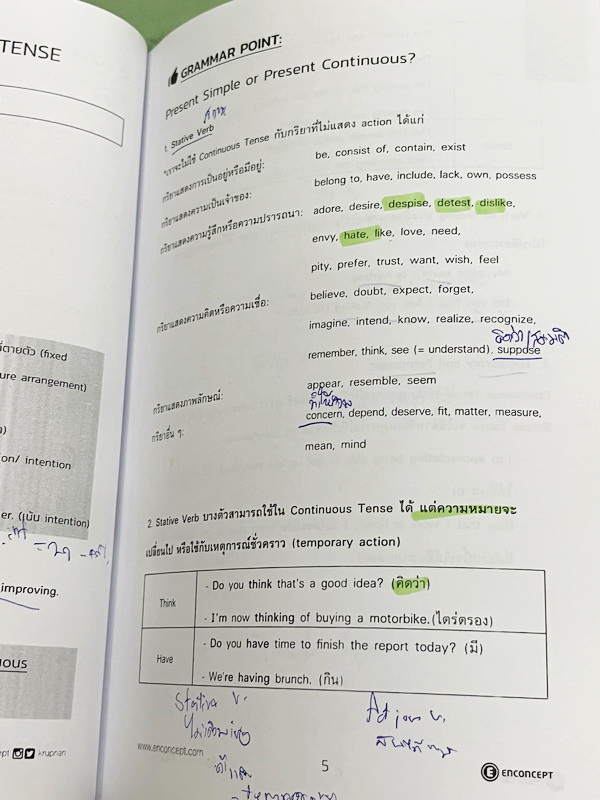 TENSE
ที่ตายตัว (fixed
ure arrangement)
on/ intention
er. (เน้น intention)
improving.
ous
ept krupnan
GRAMMAR POINT:
Present Simple or Present Continuous?
1. Stative Verb
*เราจะไม่ใช้ Continuous Tense กับกริยาที่ไม่แสดง action ได้แก่
กริยาแสดงการเป็นอยู่หรือมีอยู่: be, consist of, contain, exist
กริยาแสดงความเป็นเจ้าของ: belong to, have, include, lack, own, possess
กริยาแสดงความรู้สึกหรือความปรารถนา: adore, desire, despise, detest, dislike,
envy, hate, like, love, need,
pity, prefer, trust, want, wish, feel
กริยาแสดงความคิดหรือความเชื่อ: believe, doubt, expect, forget,
imagine, intend, know, realize, recognize,
remember, think, see (= understand), suppose
กริยาแสดงภาพลักษณ์: appear, resemble, seem
กริยาอื่น ๆ: concern, depend, deserve, fit, matter, measure,
mean, mind
2. Stative Verb บางตัวสามารถใช้ใน Continuous Tense ได้ แต่ความหมายจะ
เปลี่ยนไป หรือใช้กับเหตุการณ์ชั่วคราว (temporary action)
Think
- Do you think that's a good idea? (คิดว่า)
- I'm now thinking of buying a motorbike.(ไตร่ตรอง)
Have
- Do you have time to finish the report today? (มี)
- We're having brunch. (กิน)
Stative V.
www.enconcept.com
5
ENCONCEPT